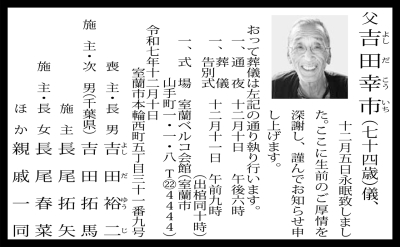 父吉田幸市(七十四歳)儀
よしだこういち
十二月五日永眠致しまし
た。ここに生前のご厚情を
深謝し、謹んでお知らせ申
し上げます。
おって葬儀は左記の通り執り行います。
一、通夜 十二月十日 午後六時
一、葬儀告別式 十二月十一日 午前九時
(出棺同十時)
一、式場 室蘭ベルコ会館(室蘭市
山手町一・一・八 T㉒4444)
令和七年十二月十日
室蘭市本輪西町五丁目三十一番九号
喪主・長男 吉田裕二
よしだゆうじ
施主・次男(千葉県) 吉田拓馬
施主 長尾拓矢
施主・長女 長尾春菜
ほか親戚一同